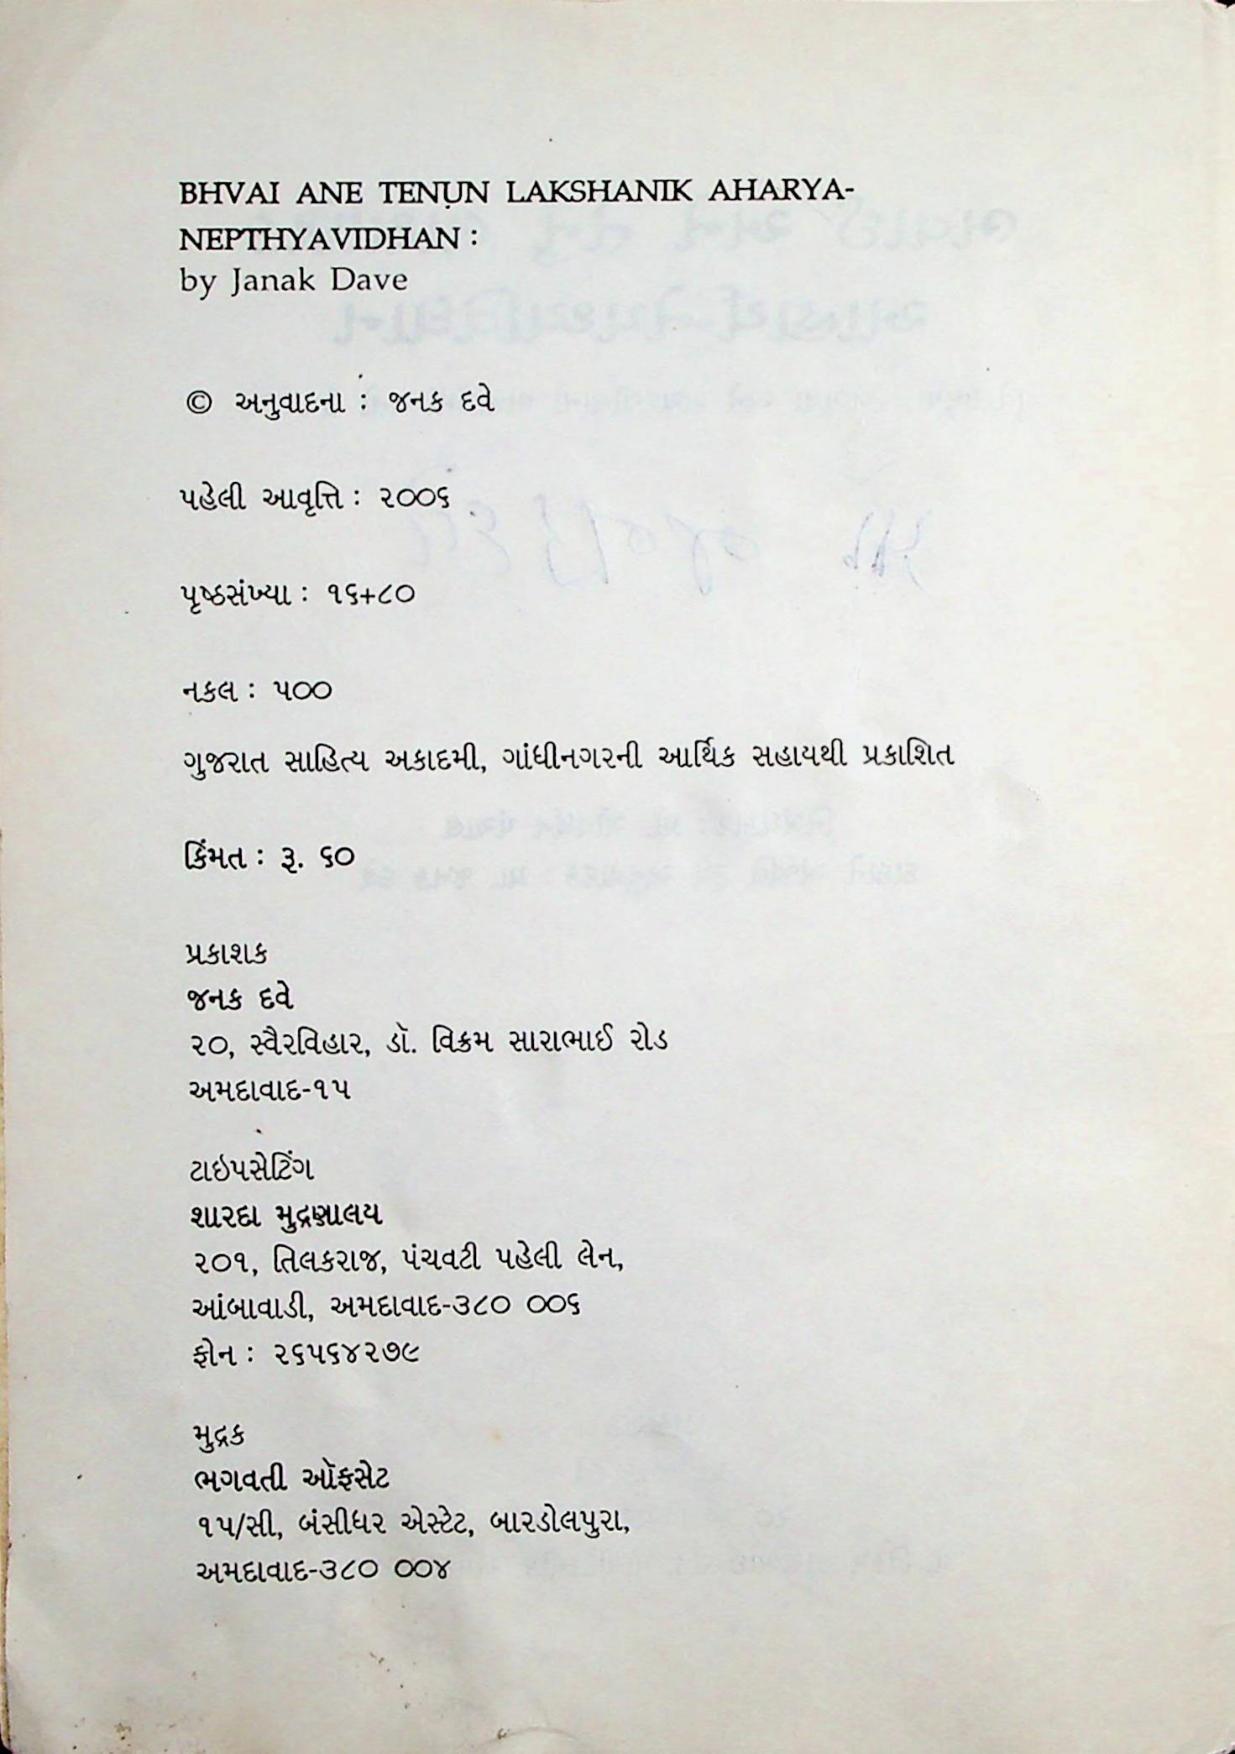 BHVAI ANE TENUN LAKSHANIK AHARYA-
NEPTHYAVIDHAN :
by Janak Dave
© અનુવાદના : જનક દવે
પહેલી આવૃત્તિ : ૨૦૦૬
પૃષ્ઠસંખ્યા : ૧૬+૮૦
નકલ : ૫૦૦
ગુજરાત સાહિત્ય અકાદમી, ગાંધીનગરની આર્થિક સહાયથી પ્રકાશિત
કિંમત : રૂ. ૬૦
પ્રકાશક
જનક દવે
૨૦, સ્વૈરવિહાર, ડૉ. વિક્રમ સારાભાઈ રોડ
અમદાવાદ-૧૫
ટાઇપસેટિંગ
શારદા મુદ્રણાલય
૨૦૧, તિલકરાજ, પંચવટી પહેલી લેન,
આંબાવાડી, અમદાવાદ-૩૮૦ ૦૦૬
ફોન : ૨૬૫૬૪૨૭૯
મુદ્રક
ભગવતી ઑફસેટ
૧૫/સી, બંસીધર એસ્ટેટ, બારડોલપુરા,
અમદાવાદ-૩૮૦ ૦૦૪